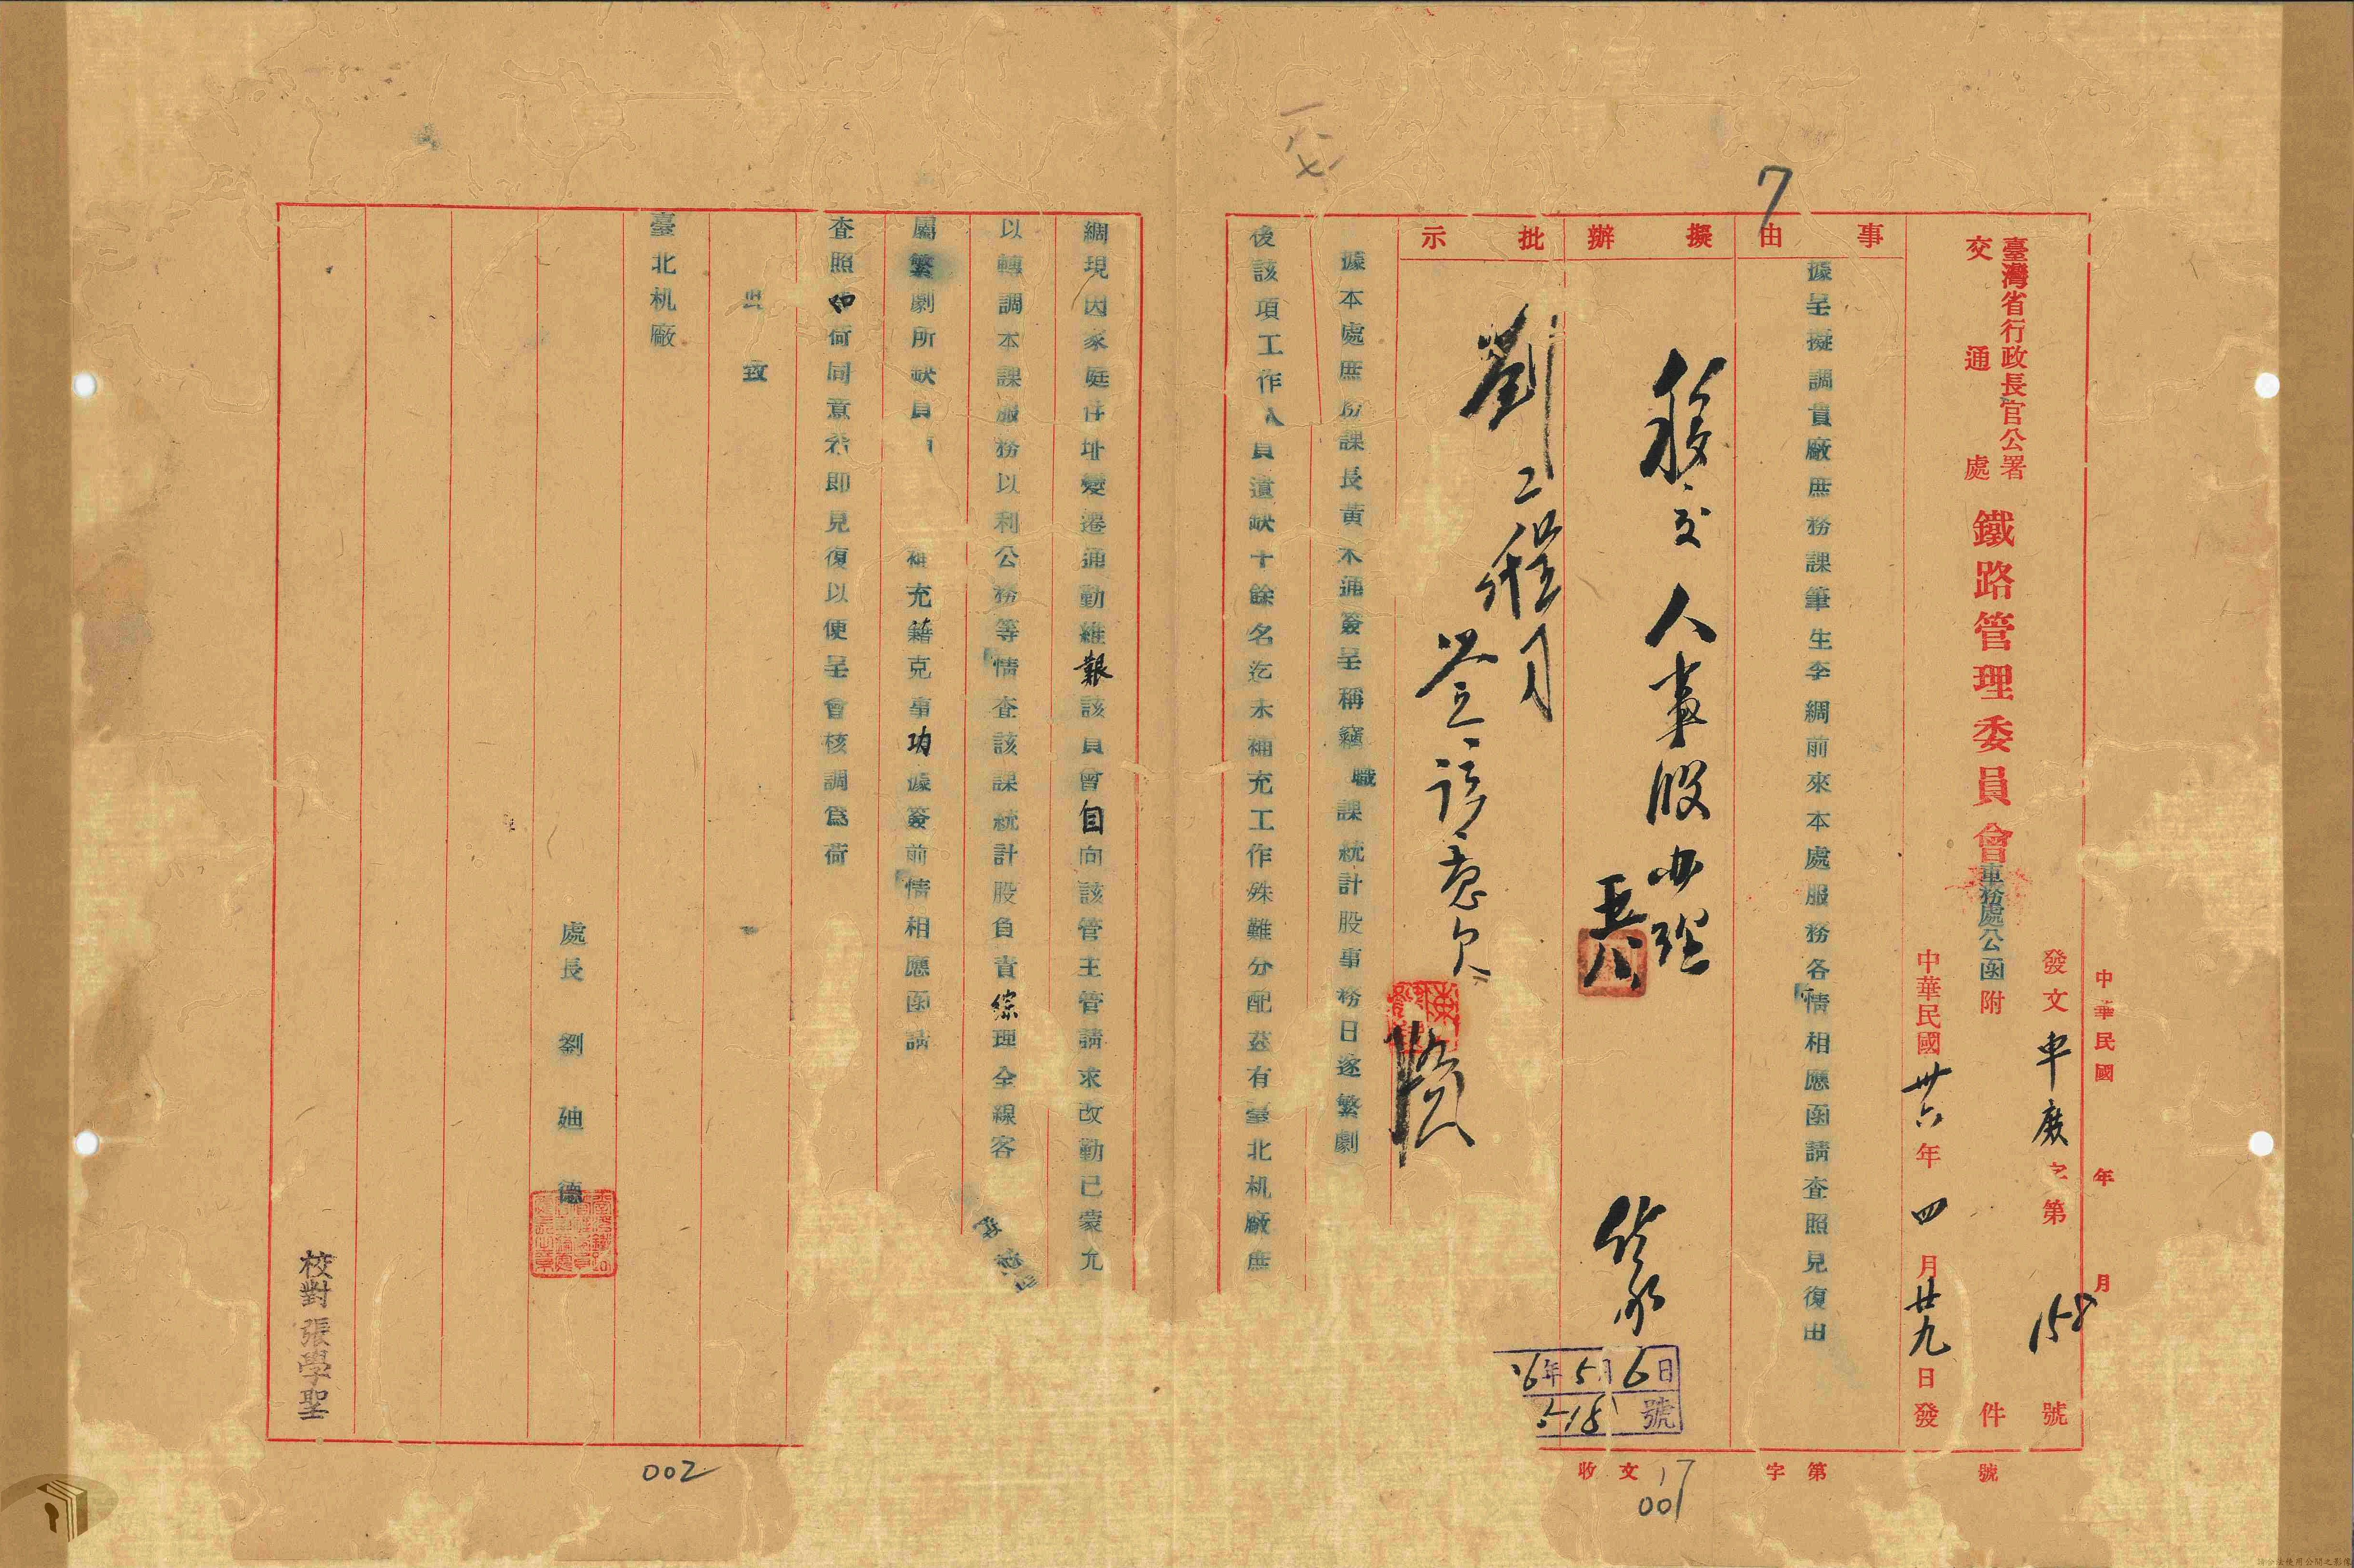 臺灣省行政長官公署
交通處
鐵路管理委員會車務處公函
附 件
發文車廠字第158號
中華民國卅六年四月廿九日發
中華民國 年 月
事由
據呈擬調貴廠庶務課筆生李綢前來本處服務各情相應函請查照見復由
擬辦
移交人事股办理
批示
劉工程司
簽註意見
據本處庶務課長黃木通簽呈稱竊職課統計股事務日逐繁劇
後該項工作人員遺缺十餘名迄未補充工作殊難分配茲有臺北机廠庶
綢現因家庭住址變遷通勤維艱該員曾自向該管主管請求改勤已蒙允
以轉調本課服務以利公務等情查該課統計股負責綜理全線客
屬繁劇所缺員
補充藉克事功據簽前情相應函請
查照如荷同意希即見復以便呈會核調為荷
此致
臺北机廠
處長 劉 廸 德
校對 張學聖
36年5月6日
518號
收文 字第 號
7
17
001
002